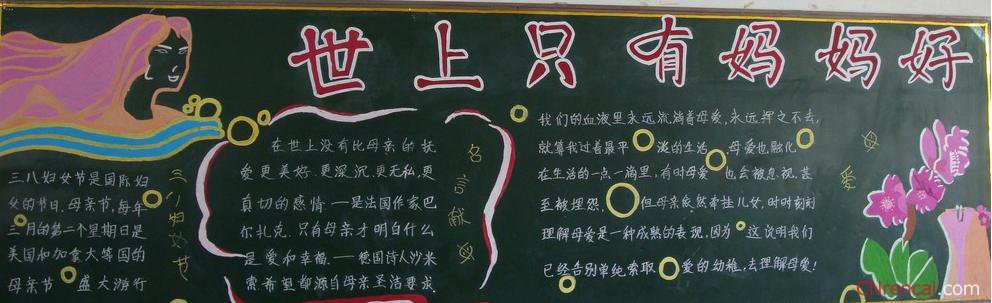 世上只有妈妈好
三八妇女节是国际妇
女的节日.母亲节,每年
三月的第二个星期日是
美国和加拿大等国的
母亲节 盛大游行
三八妇女节
在世上没有比母亲的抚
爱更美好.更深沉.更无私.更
真切的感情—是法国作家巴
尔扎克.只有母亲才明白什么
是爱和幸福.—德国诗人沙米
索希望都源自母亲圣洁要求.
名言献母
我们的血液里永远流淌着母爱,永远挥之不去,
就算我过着最平 淡的生活 母爱也融化
在生活的一点一滴里.有时母爱 也会被忽视.甚
至被埋怨, 但母亲依然牵挂儿女,时时刻刻
理解母爱是一种成熟的表现,因为 这说明我们
已经告别单纯索取 爱的幼稚,去理解母爱!
母爱
CNrencai.com